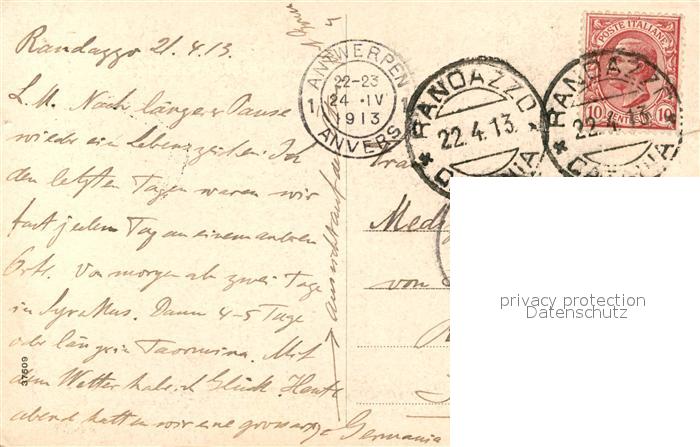 Randazzo 21.4.13.
L. M. Nach längerer Pause
wieder ein Lebenszeichen. In
den letzten Tagen waren wir
fast jeden Tag an einem anderen
Orte. Von morgen ab zwei Tage
in Syrakus. Dann 4-5 Tage
oder länger in Taormina. Mit
dem Wetter habe ich Glück. Heute
abend hatten wir eine grossartige
Aussicht auf den
ANTWERPEN
22-23
1 24 IV 1
1913
ANVERS
RANDAZZO
22.4.13.
CATANIA
RANDAZZO
22.4.13
CATANIA
POSTE ITALIANE
10 CENTESIMI 10
von
Germania
37509
privacy protection
Datenschutz